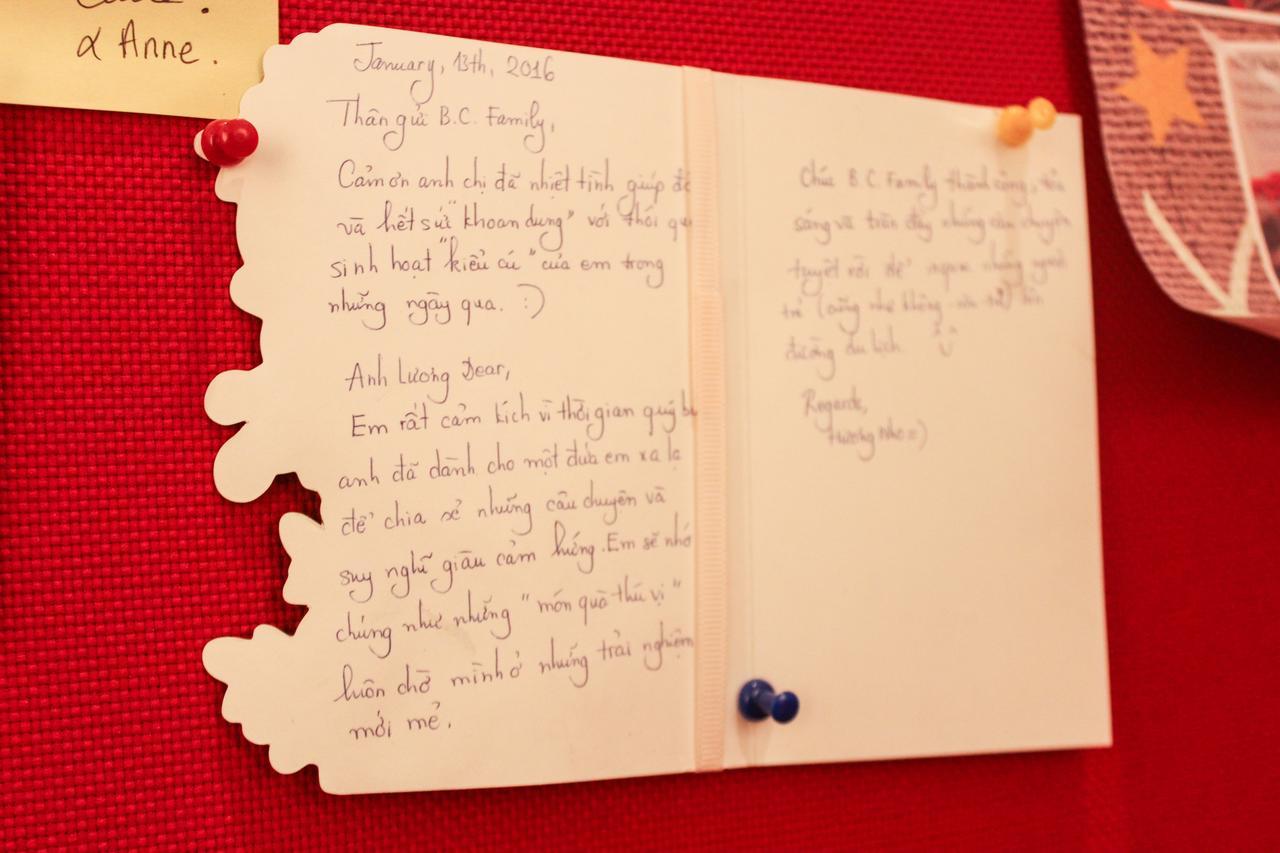 & Anne.
January, 13th, 2016
Thân gửi B.C. Family,
Cảm ơn anh chị đã nhiệt tình giúp đỡ
và hết sức "khoan dung" với thói
sinh hoạt "kiểu cú" của em trong
những ngày qua. :)
Anh Lương Dear,
Em rất cảm kích vì thời gian quý
anh đã dành cho một đứa em xa lạ
để chia sẻ những câu chuyện và
suy nghĩ giàu cảm hứng. Em sẽ nhớ
chúng như những "món quà thú vị"
luôn chờ mình ở những trải nghiệm
mới mẻ.
Chúc B.C. Family thành công,
sáng và tràn đầy những câu chuyện
tuyệt vời để những người
trẻ (cũng như không còn trẻ) trên
đường du lịch.
Regards,